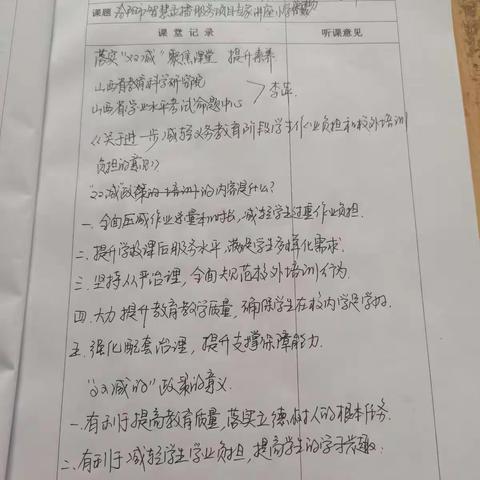 课题 智慧直播服务项目专家讲座小学
课堂记录 听课意见
落实“双减”聚焦课堂 提升素养
山西省教育科学研究院
山西省学业水平考试命题中心 李萍
《关于进一步减轻义务教育阶段学生作业负担和校外培训
负担的意见》
“双减政策的培训的内容是什么?
一.全面压减作业总量和时长,减轻学生过重作业负担.
二.提升学校课后服务水平,满足学生多样化需求.
三.坚持从严治理,全面规范校外培训行为.
四.大力提升教育教学质量,确保学生在校内学足学好.
五.强化配套治理,提升支撑保障能力.
“双减的”政策的意义.
一.有利于提高教育质量,落实立德树人的根本任务.
二.有利于减轻学生学业负担,提高学生的学习兴趣.